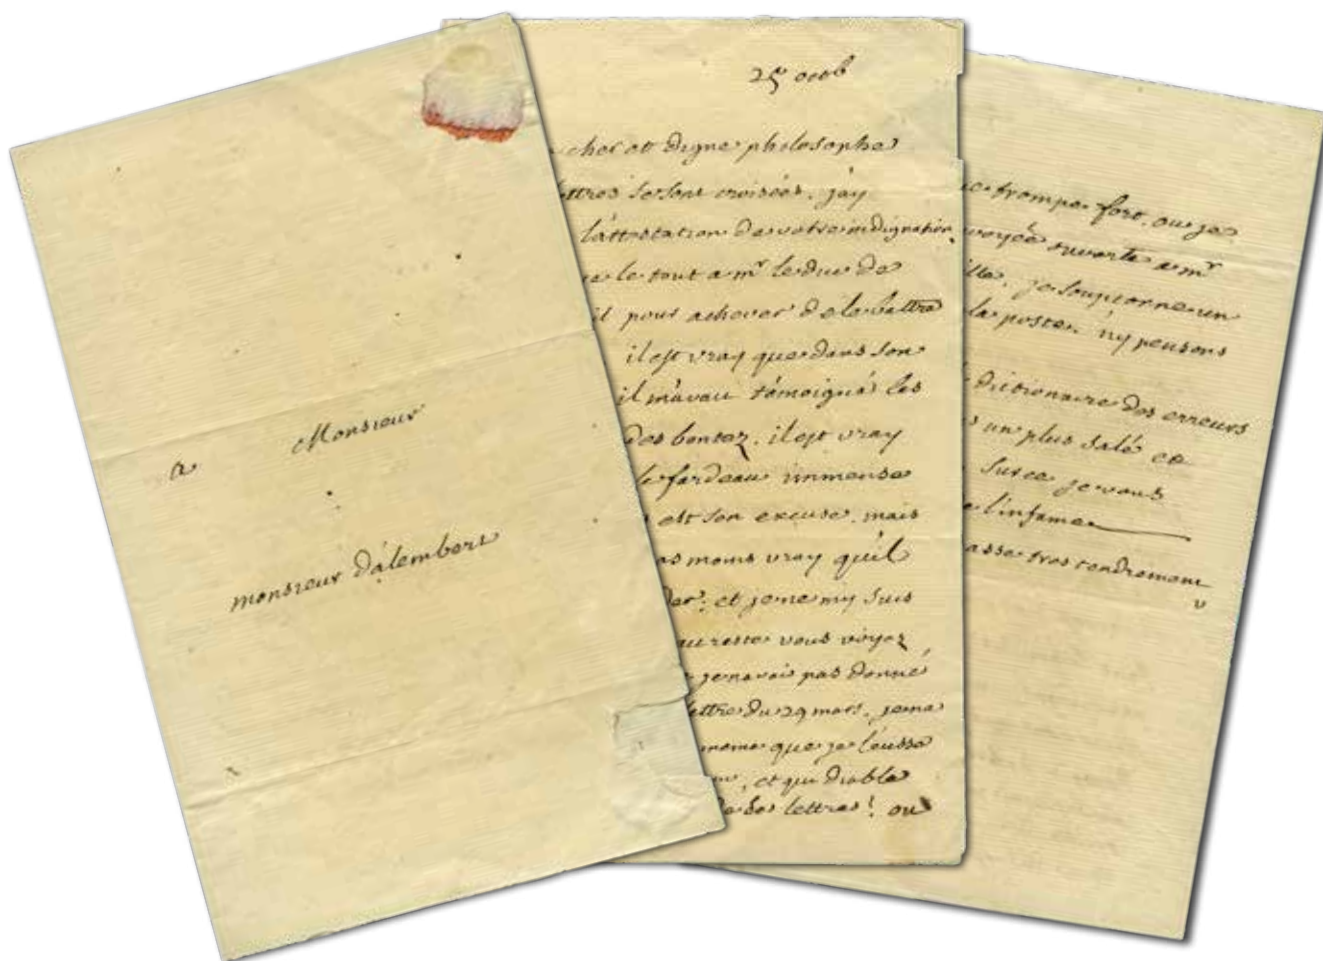 a Monsieur
monsieur dàlembert
25 octob
cher et digne philosophe
ettres se sont croisées. j'ay
l'attestation de votre indignation,
le tout a mr le duc de
il pour achever de le battre
il est vray que dans son
il m'avait témoigné les
des bontez. il est vray
le fardeau immense
est son excuse. mais
as moins vray quil
et je ne my suis
au reste vous voyez
je navois pas donné
lettre du 29 mars. je
meme que je l'eusse
, et qui diable
de ses lettres! ou
trompe fort, ou je
voyée ouverte a mr
je soupconne un
la poste. n'y pensons
dictionaire des erreurs
un plus salé et
je vous
l'infame
asse tres tendrement
v